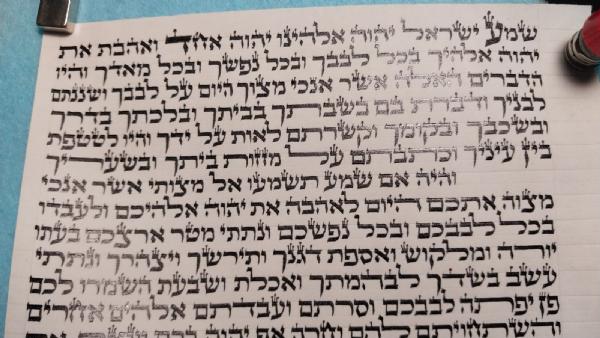 שמע ישראל יהוה אלהינו יהוה אחד ואהבת את
יהוה אלהיך בכל לבבך ובכל נפשך ובכל מאדך והיו
הדברים האלה אשר אנכי מצוך היום על לבבך ושננתם
לבניך ודברת בם בשבתך בביתך ובלכתך בדרך
ובשכבך ובקומך וקשרתם לאות על ידך והיו לטטפת
בין עיניך וכתבתם על מזזות ביתך ובשעריך
והיה אם שמע תשמעו אל מצותי אשר אנכי
מצוה אתכם היום לאהבה את יהוה אלהיכם ולעבדו
בכל לבבכם ובכל נפשכם ונתתי מטר ארצכם בעתו
יורה ומלקוש ואספת דגנך ותירשך ויצהרך ונתתי
עשב בשדך לבהמתך ואכלת ושבעת השמרו לכם
פן יפתה לבבכם וסרתם ועבדתם אלהים אחרים
והשתחויתם להם וחרה אף יהוה בכם